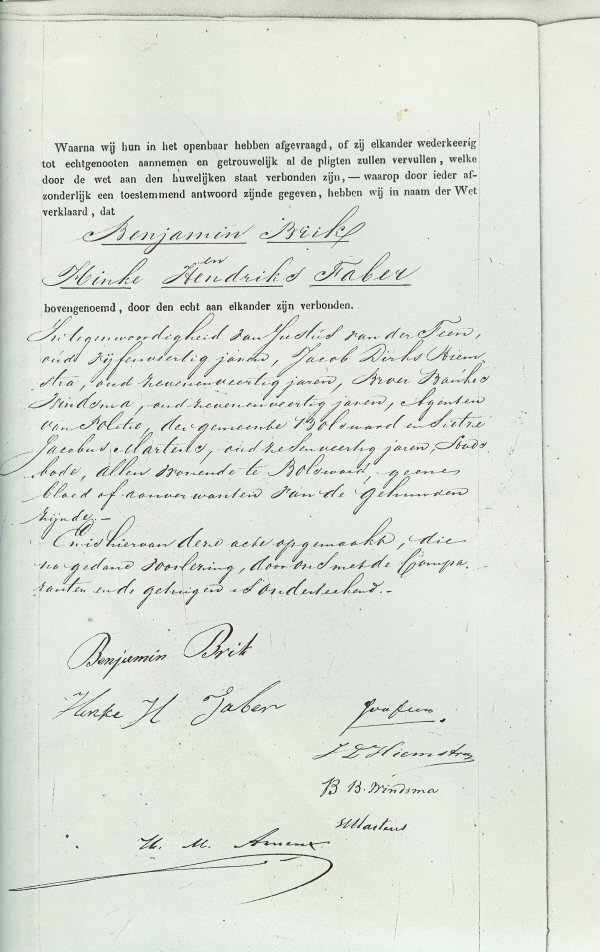 Waarna wij hun in het openbaar hebben afgevraagd, of zij elkander wederkeerig
tot echtgenooten aannemen en getrouwelijk al de pligten zullen vervullen, welke
door de wet aan den huwelijken staat verbonden zijn, — waarop door ieder af-
zonderlijk een toestemmend antwoord zijnde gegeven, hebben wij in naam der Wet
verklaard, dat
Benjamin Brik
en
Hinke Hendriks Faber
bovengenoemd, door den echt aan elkander zijn verbonden.
In tegenwoordigheid van Justus van der Feen,
oud vijfenveertig jaren, Jacob Dirks Hiem-
stra, oud zevenenveertig jaren, Broer Baukes
Windsma, oud zevenenveertig jaren, Agenten
van Politie, der gemeente Bolsward en Sietse
Jacobus Martens, oud zesenveertig jaren,
bode, allen wonende te Bolsward, geene
bloed of aanverwanten van de gehuwden
zijnde.—
En is hiervan deze acte opgemaakt, die
na gedane voorlezing, door ons met de Compa-
ranten en de getuigen is onderteekend.—
Benjamin Brik
Hinke H Faber
J D Hiemstra
B B. Windsma
SMartens